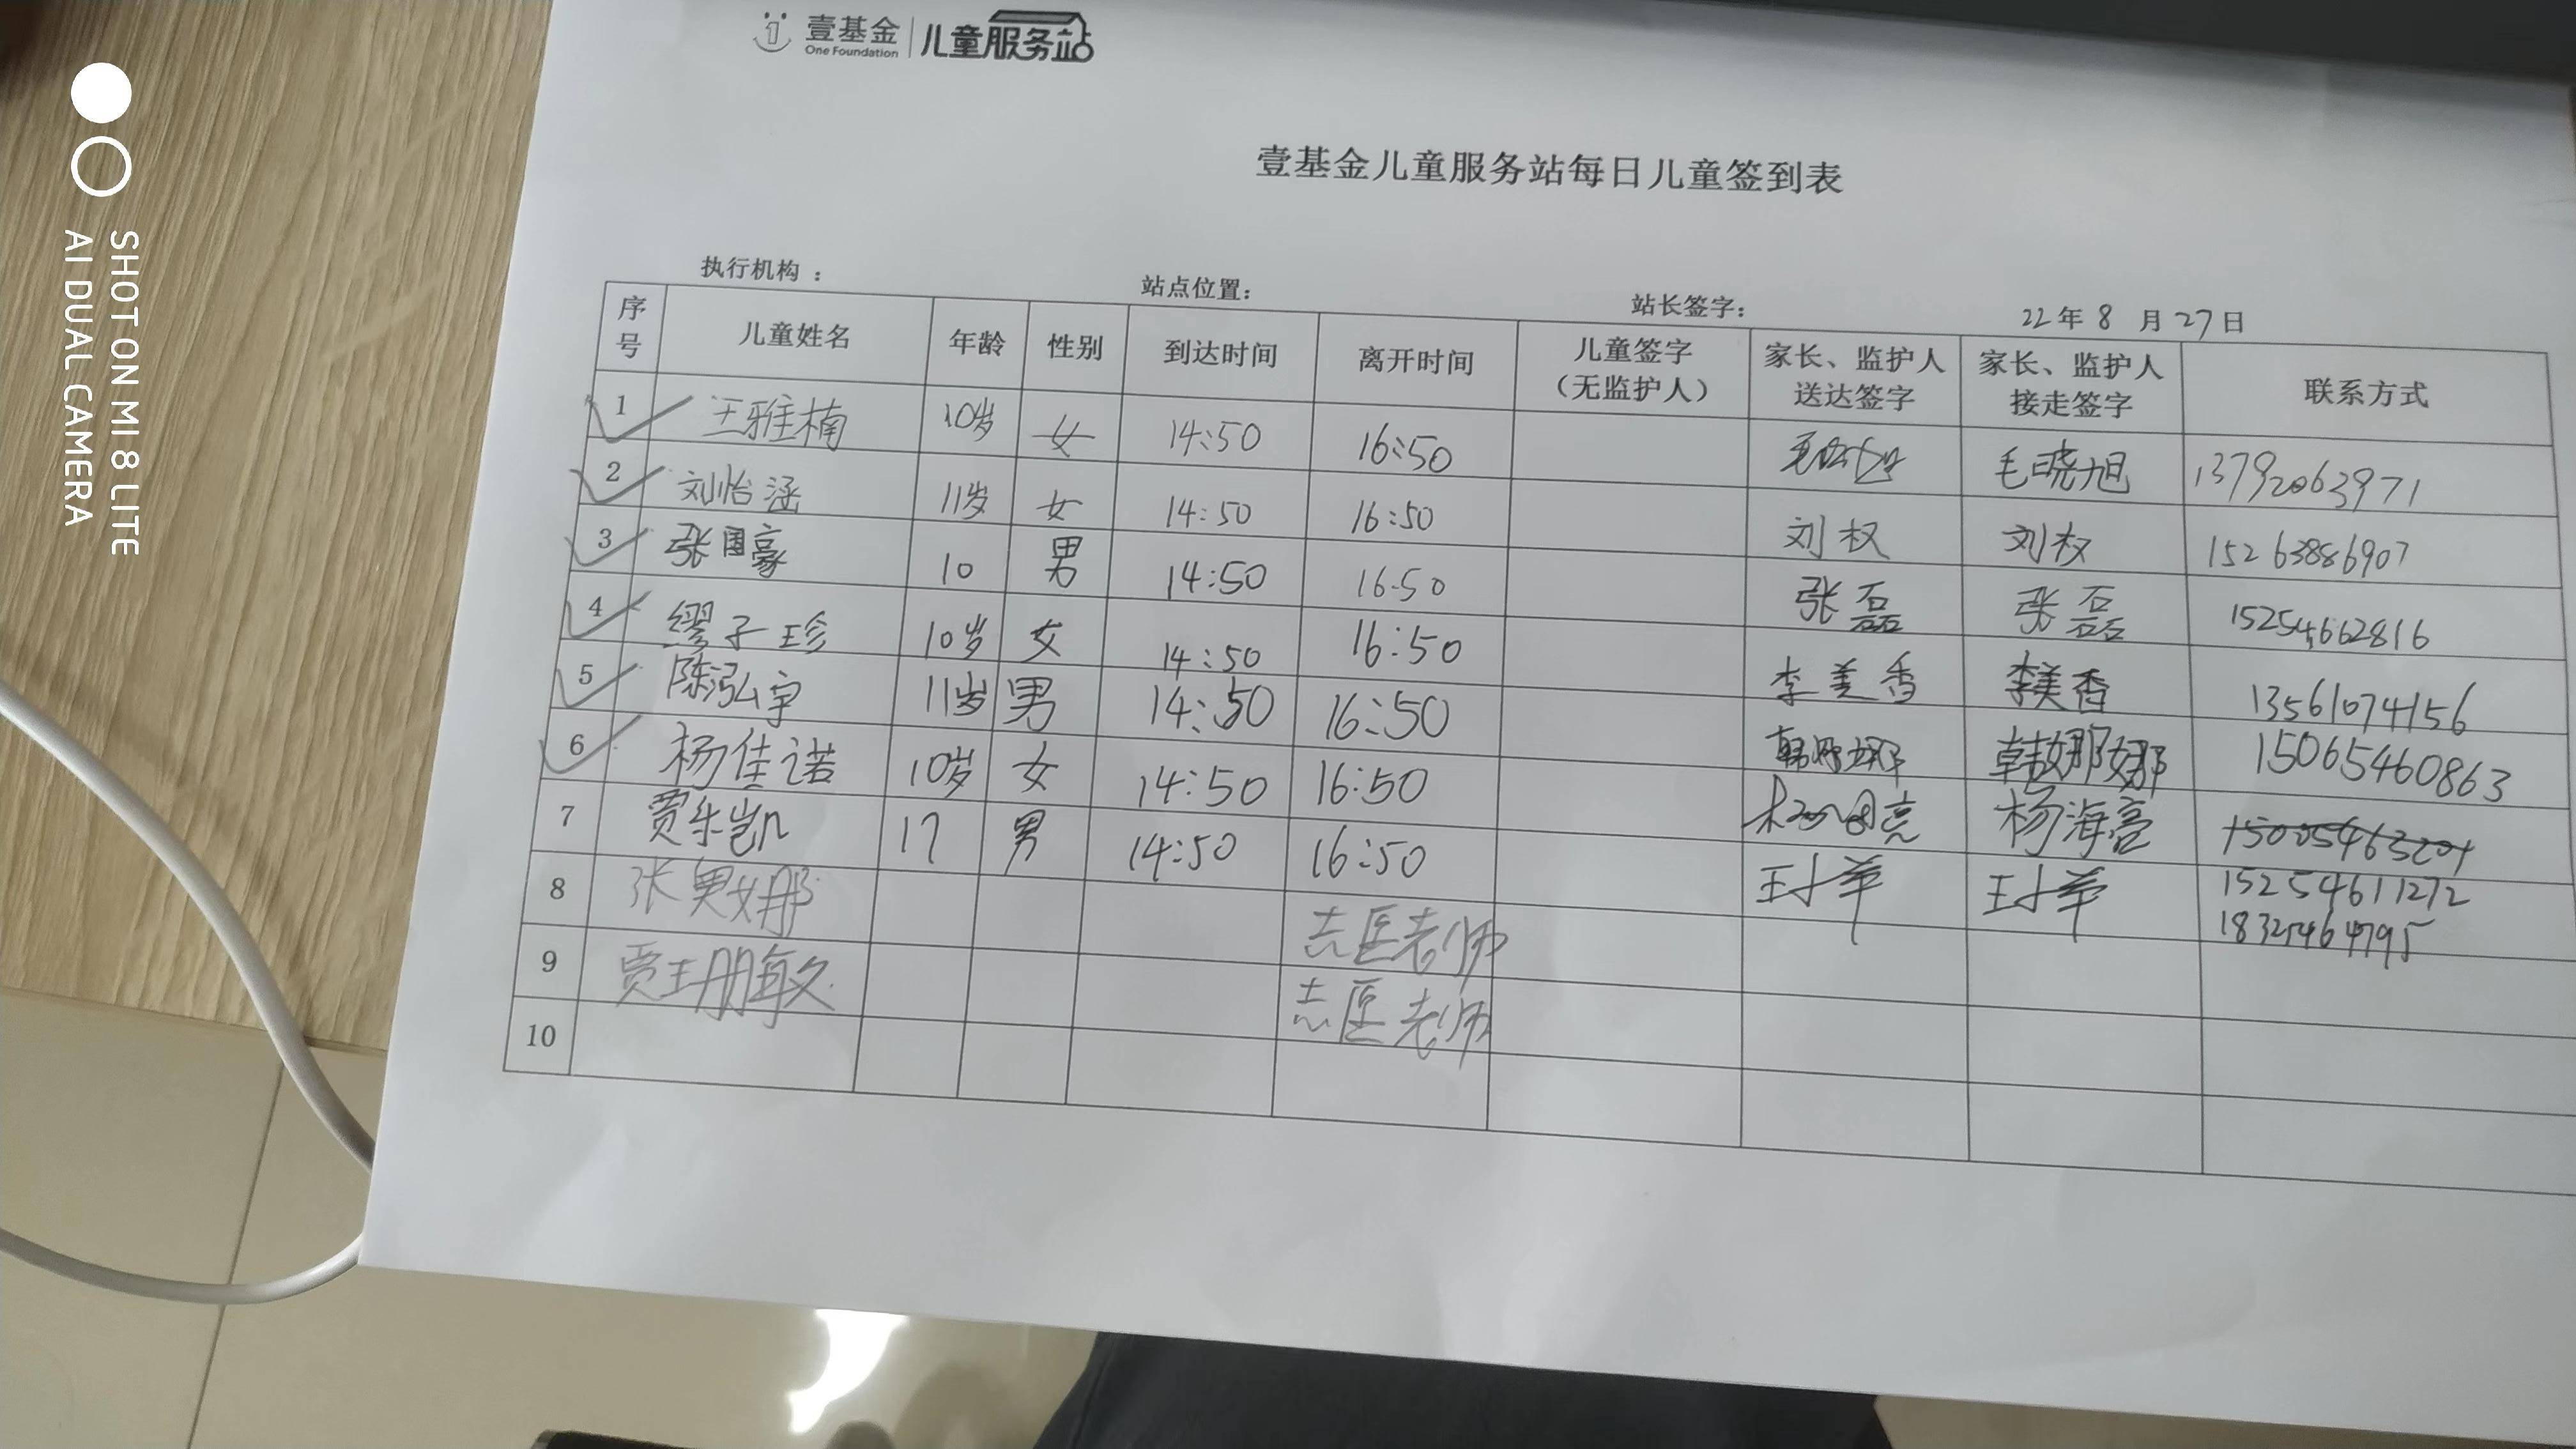 壹基金 One Foundation 儿童服务站
壹基金儿童服务站每日儿童签到表
执行机构： 站点位置： 站长签字： 22年8月27日
序号 儿童姓名 年龄 性别 到达时间 离开时间 儿童签字（无监护人） 家长、监护人送达签字 家长、监护人接走签字 联系方式
1 王雅楠 10岁 女 14:50 16:50 毛晓旭 13792063971
2 刘怡涵 11岁 女 14:50 16:50 刘权 刘权 15263886907
3 张国豪 10 男 14:50 16:50 张磊 张磊 15254662816
4 缪子珍 10岁 女 14:50 16:50 李美香 李美香 13561074156
5 陈泓宇 11岁 男 14:50 16:50 韩娜娜 15065460863
6 杨佳诺 10岁 女 14:50 16:50 杨海亮 15254611272
7 贾乐凯 17 男 14:50 16:50
8 老师
9 贾 老师
10
SHOT ON MI 8 LITE
AI DUAL CAMERA